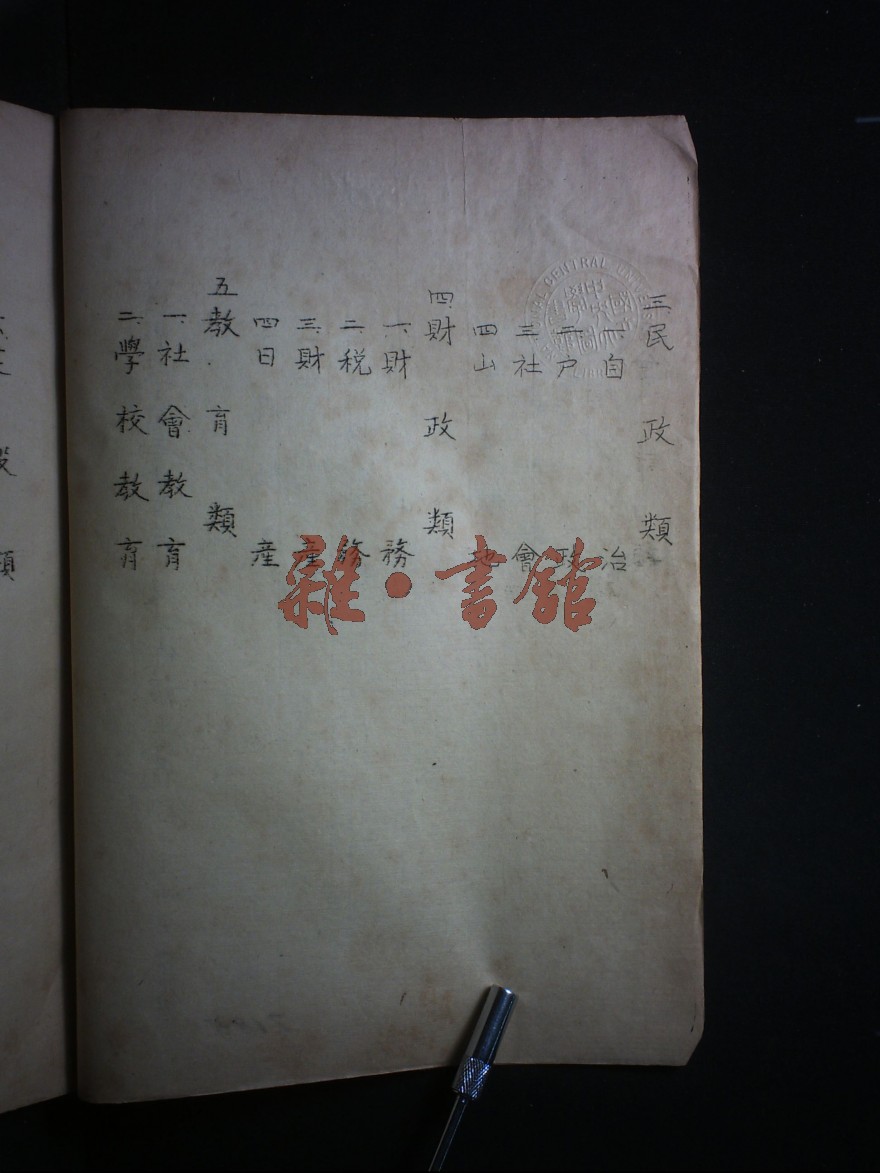 三民政類
一、自治
二、戶政
三、社會
四、山地
四、財政類
一、財務
二、稅務
三、財產
四日產
五教育類
一、社會教育
二、學校教育
雜·書館
CENTRAL